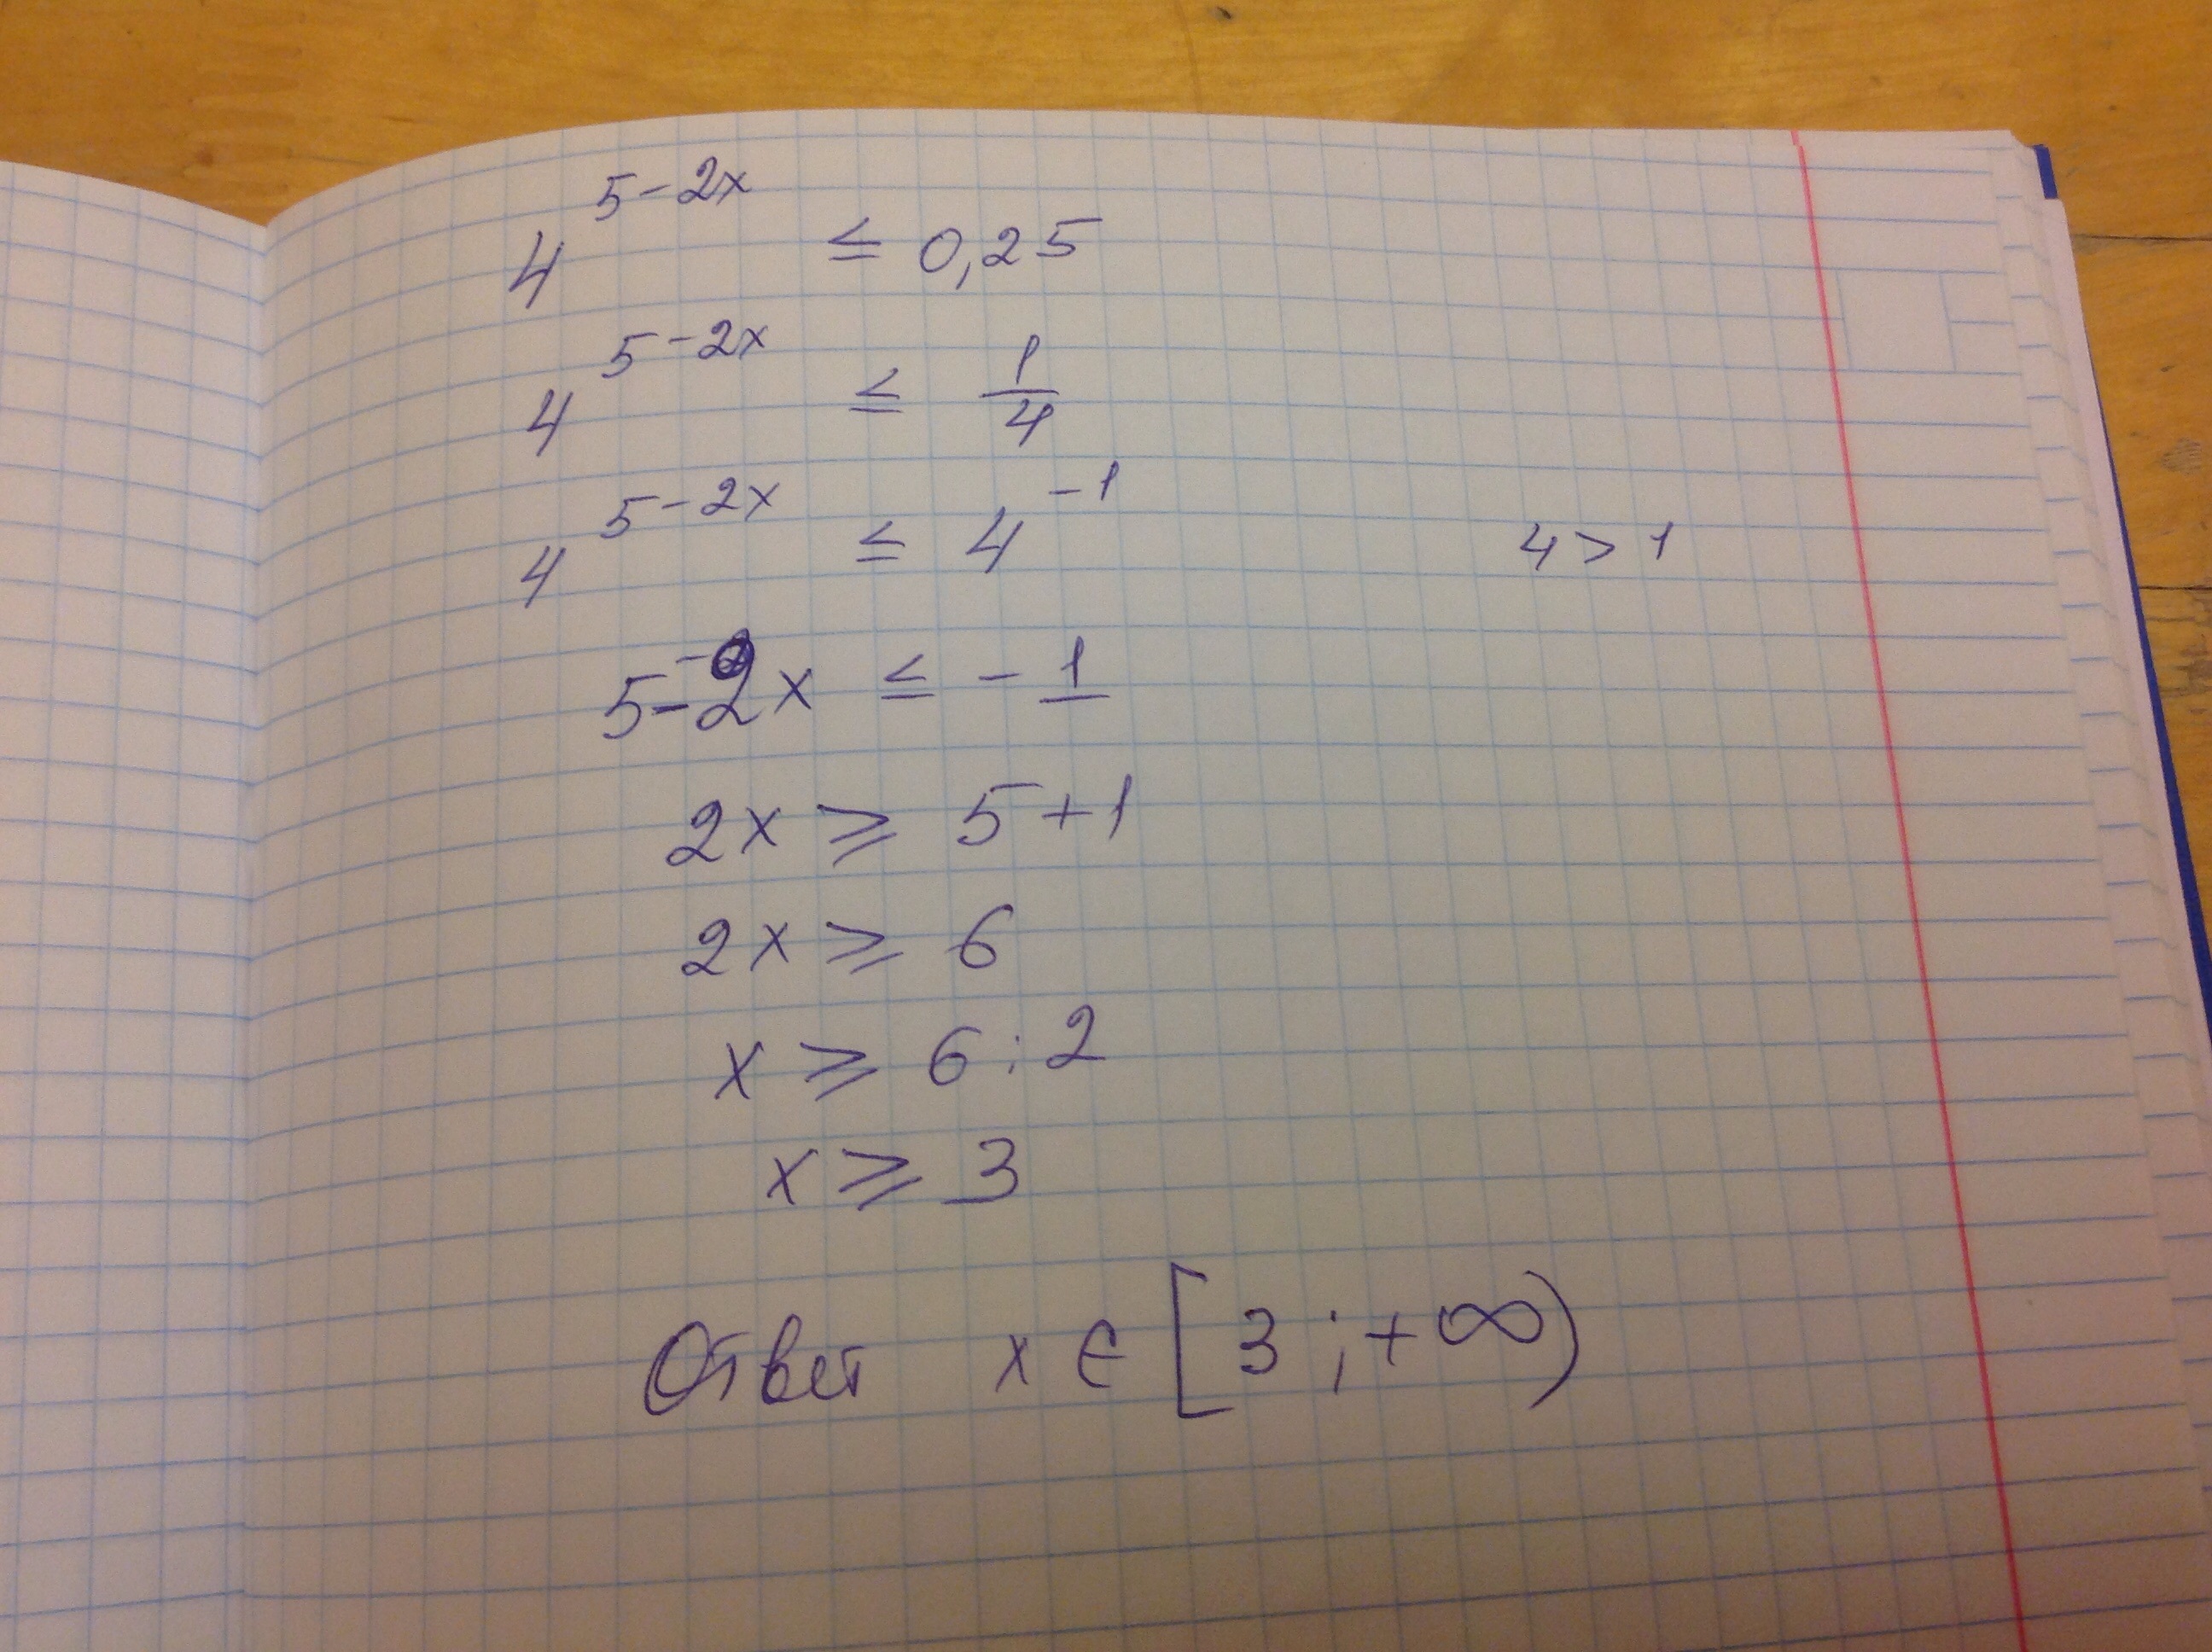 4^{5-2x} ≤ 0,25
4^{5-2x} ≤ 1/4
4^{5-2x} ≤ 4^{-1} 4 > 1
5-2x ≤ -1
2x ⩾ 5+1
2x ⩾ 6
x ⩾ 6:2
x ⩾ 3
Ответ x ∈ [3;+∞)